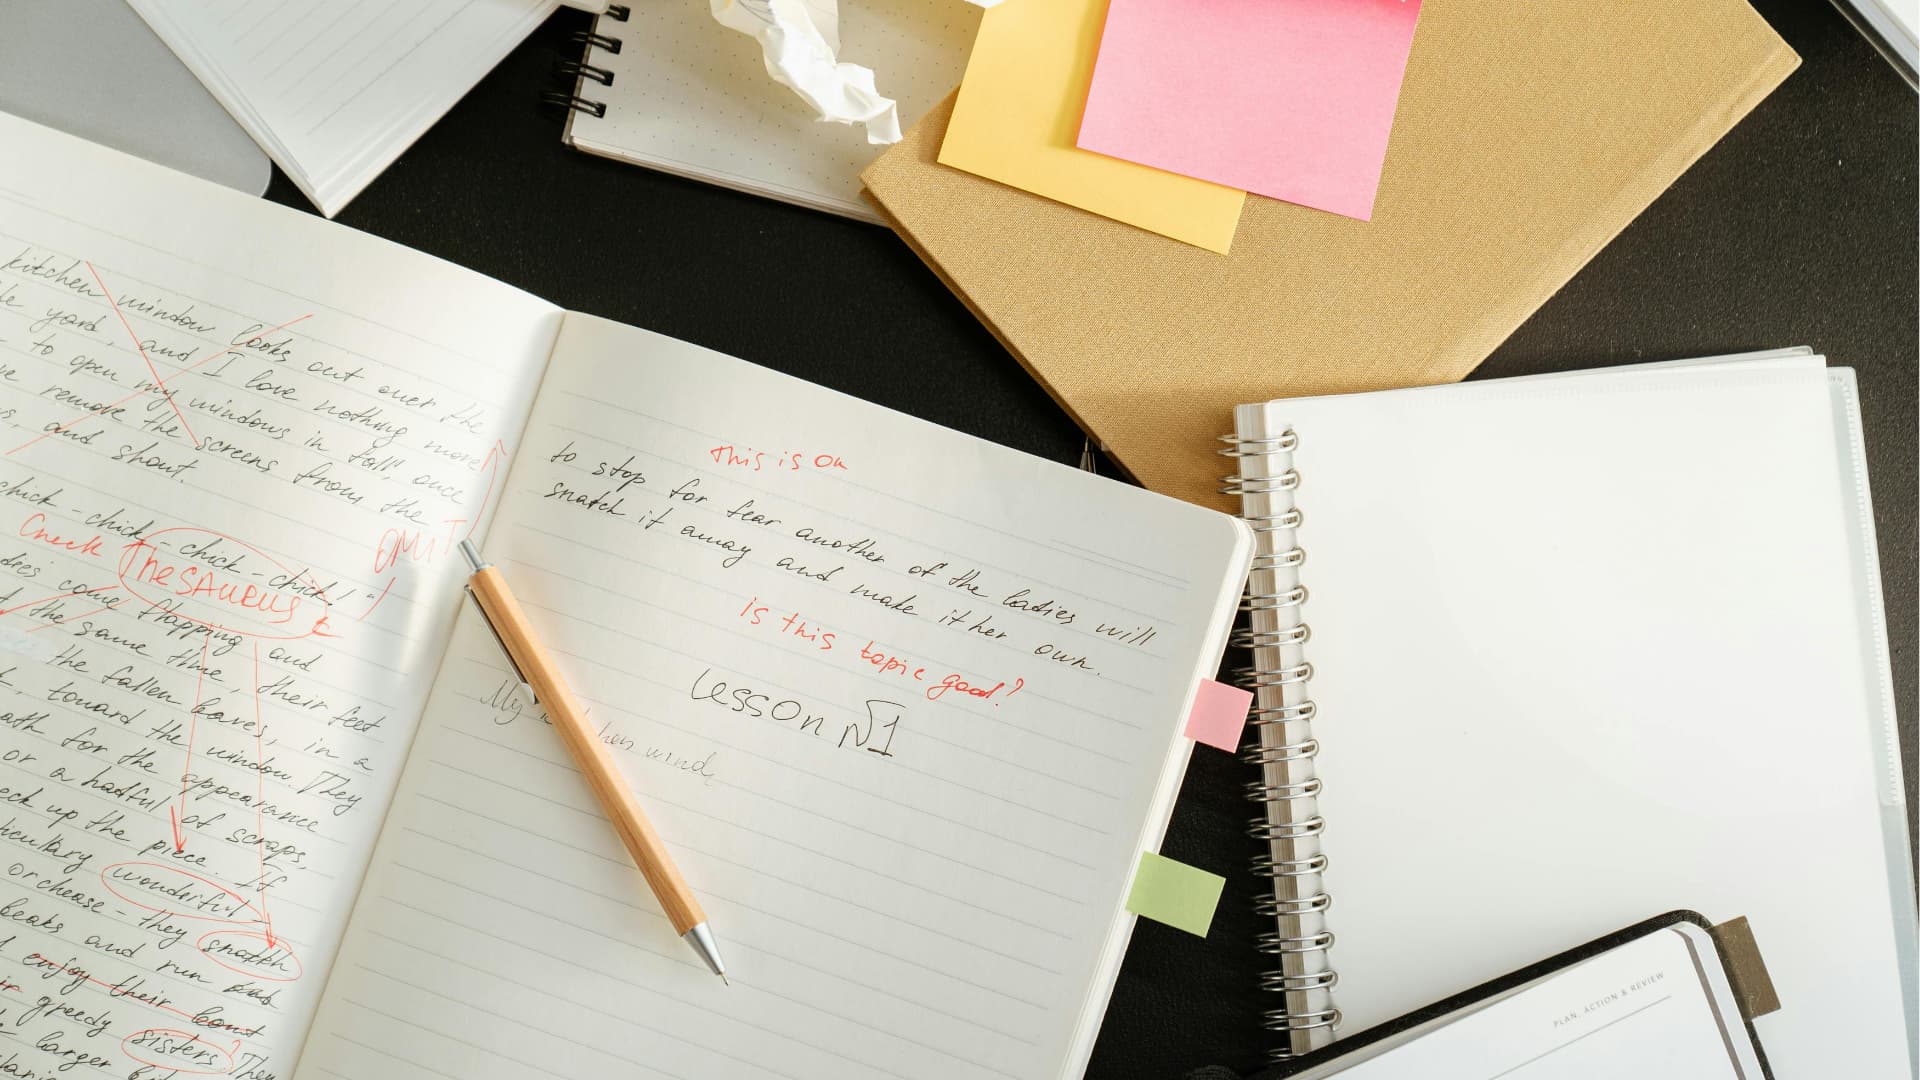 kitchen window looks out over the
yard, and I love nothing more
to open my windows in fall, once
remove the screens from the
and shout.
chick-chick-chick-chick!"
OMIT
Check Thesaurus
come flapping and
the same time, their feet
the fallen leaves, in a
toward the window. They
for the appearance
or a hadful of scraps,
up the piece. If
wonderful-
orchease - they snatch
beaks and run
enjoy their
greedy sisters? They
larger
This is Ok
to stop for fear another of the ladies will
snatch it away and make it her own.
is this topic good?
Lesson N1
My
hen wind
PLAN, ACTION & REVIEW